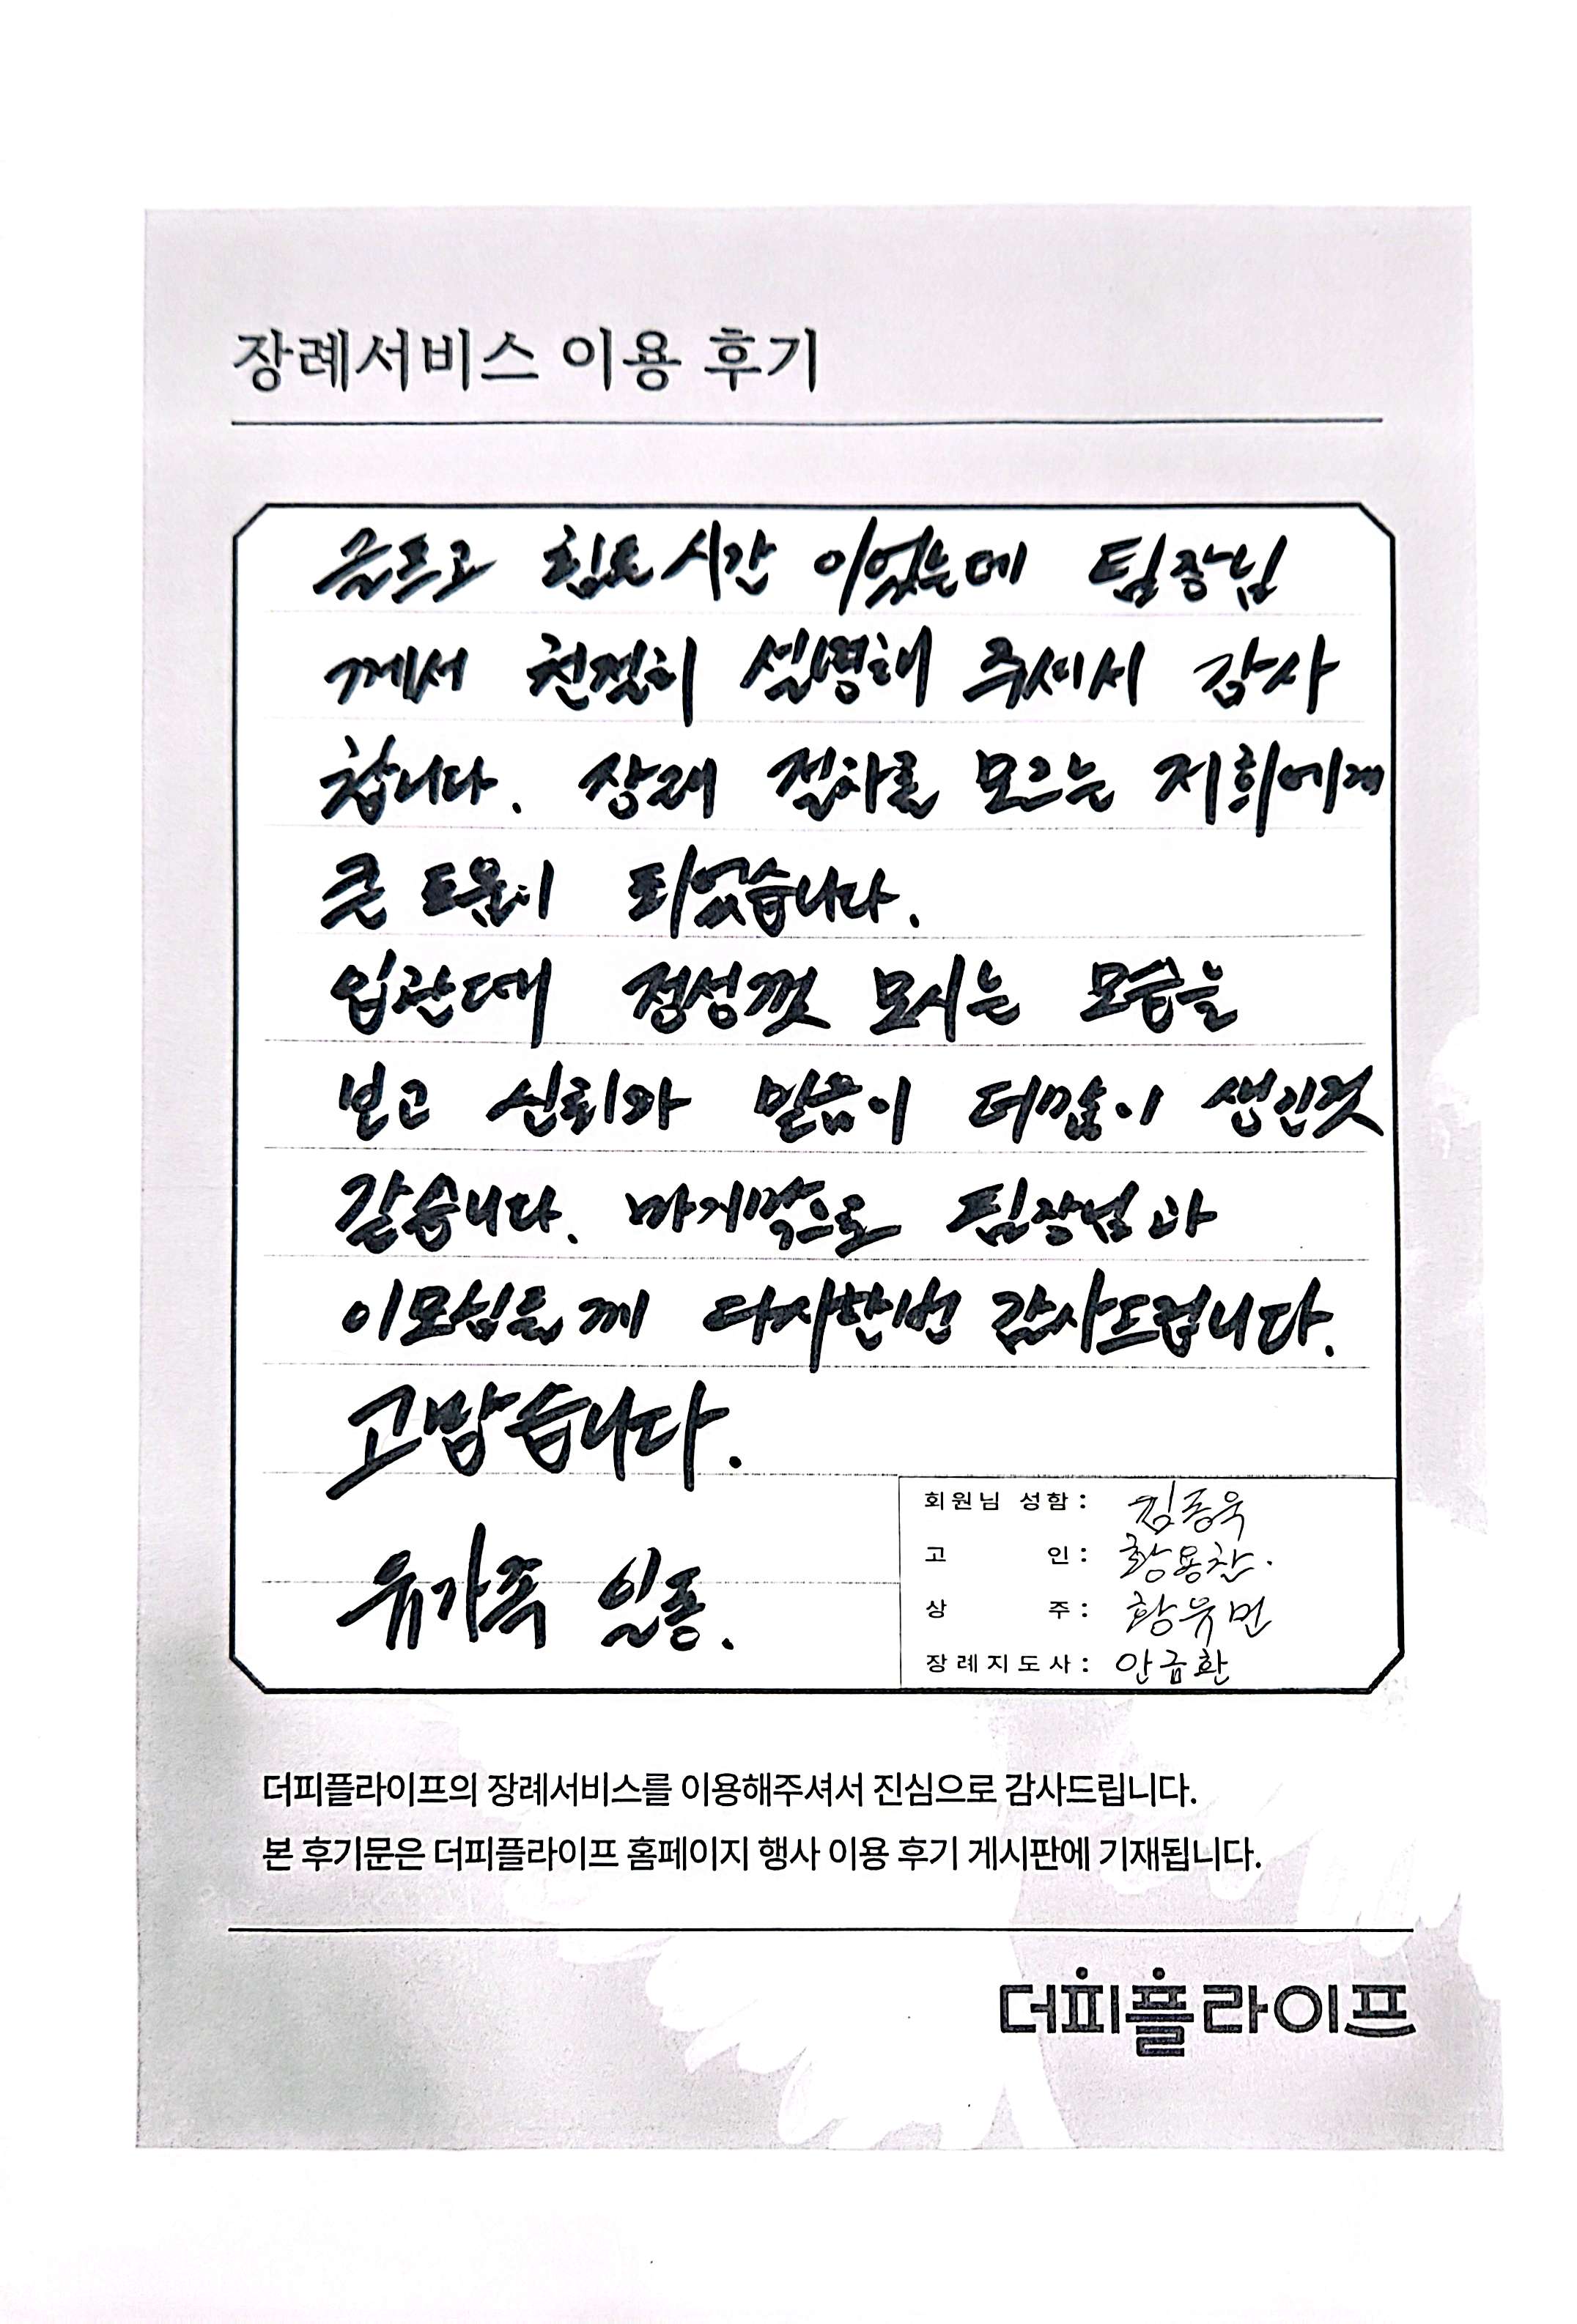 장례서비스 이용 후기
슬프고 힘든 시간 이었는데 팀장님
께서 친절히 설명해 주셔서 감사
합니다. 상례 절차를 모르는 저희에게
큰 도움이 되었습니다.
입관때 정성껏 모시는 모습을
보고 신뢰와 믿음이 더많이 생긴것
같습니다. 마지막으로 팀장님과
이모님들께 다시한번 감사드립니다.
고맙습니다.
유가족 일동.
회원님 성함: 김종욱
고 인: 황용찬.
상 주: 황유민
장례지도사: 안금환
더피플라이프의 장례서비스를 이용해주셔서 진심으로 감사드립니다.
본 후기문은 더피플라이프 홈페이지 행사 이용 후기 게시판에 기재됩니다.
더피플라이프